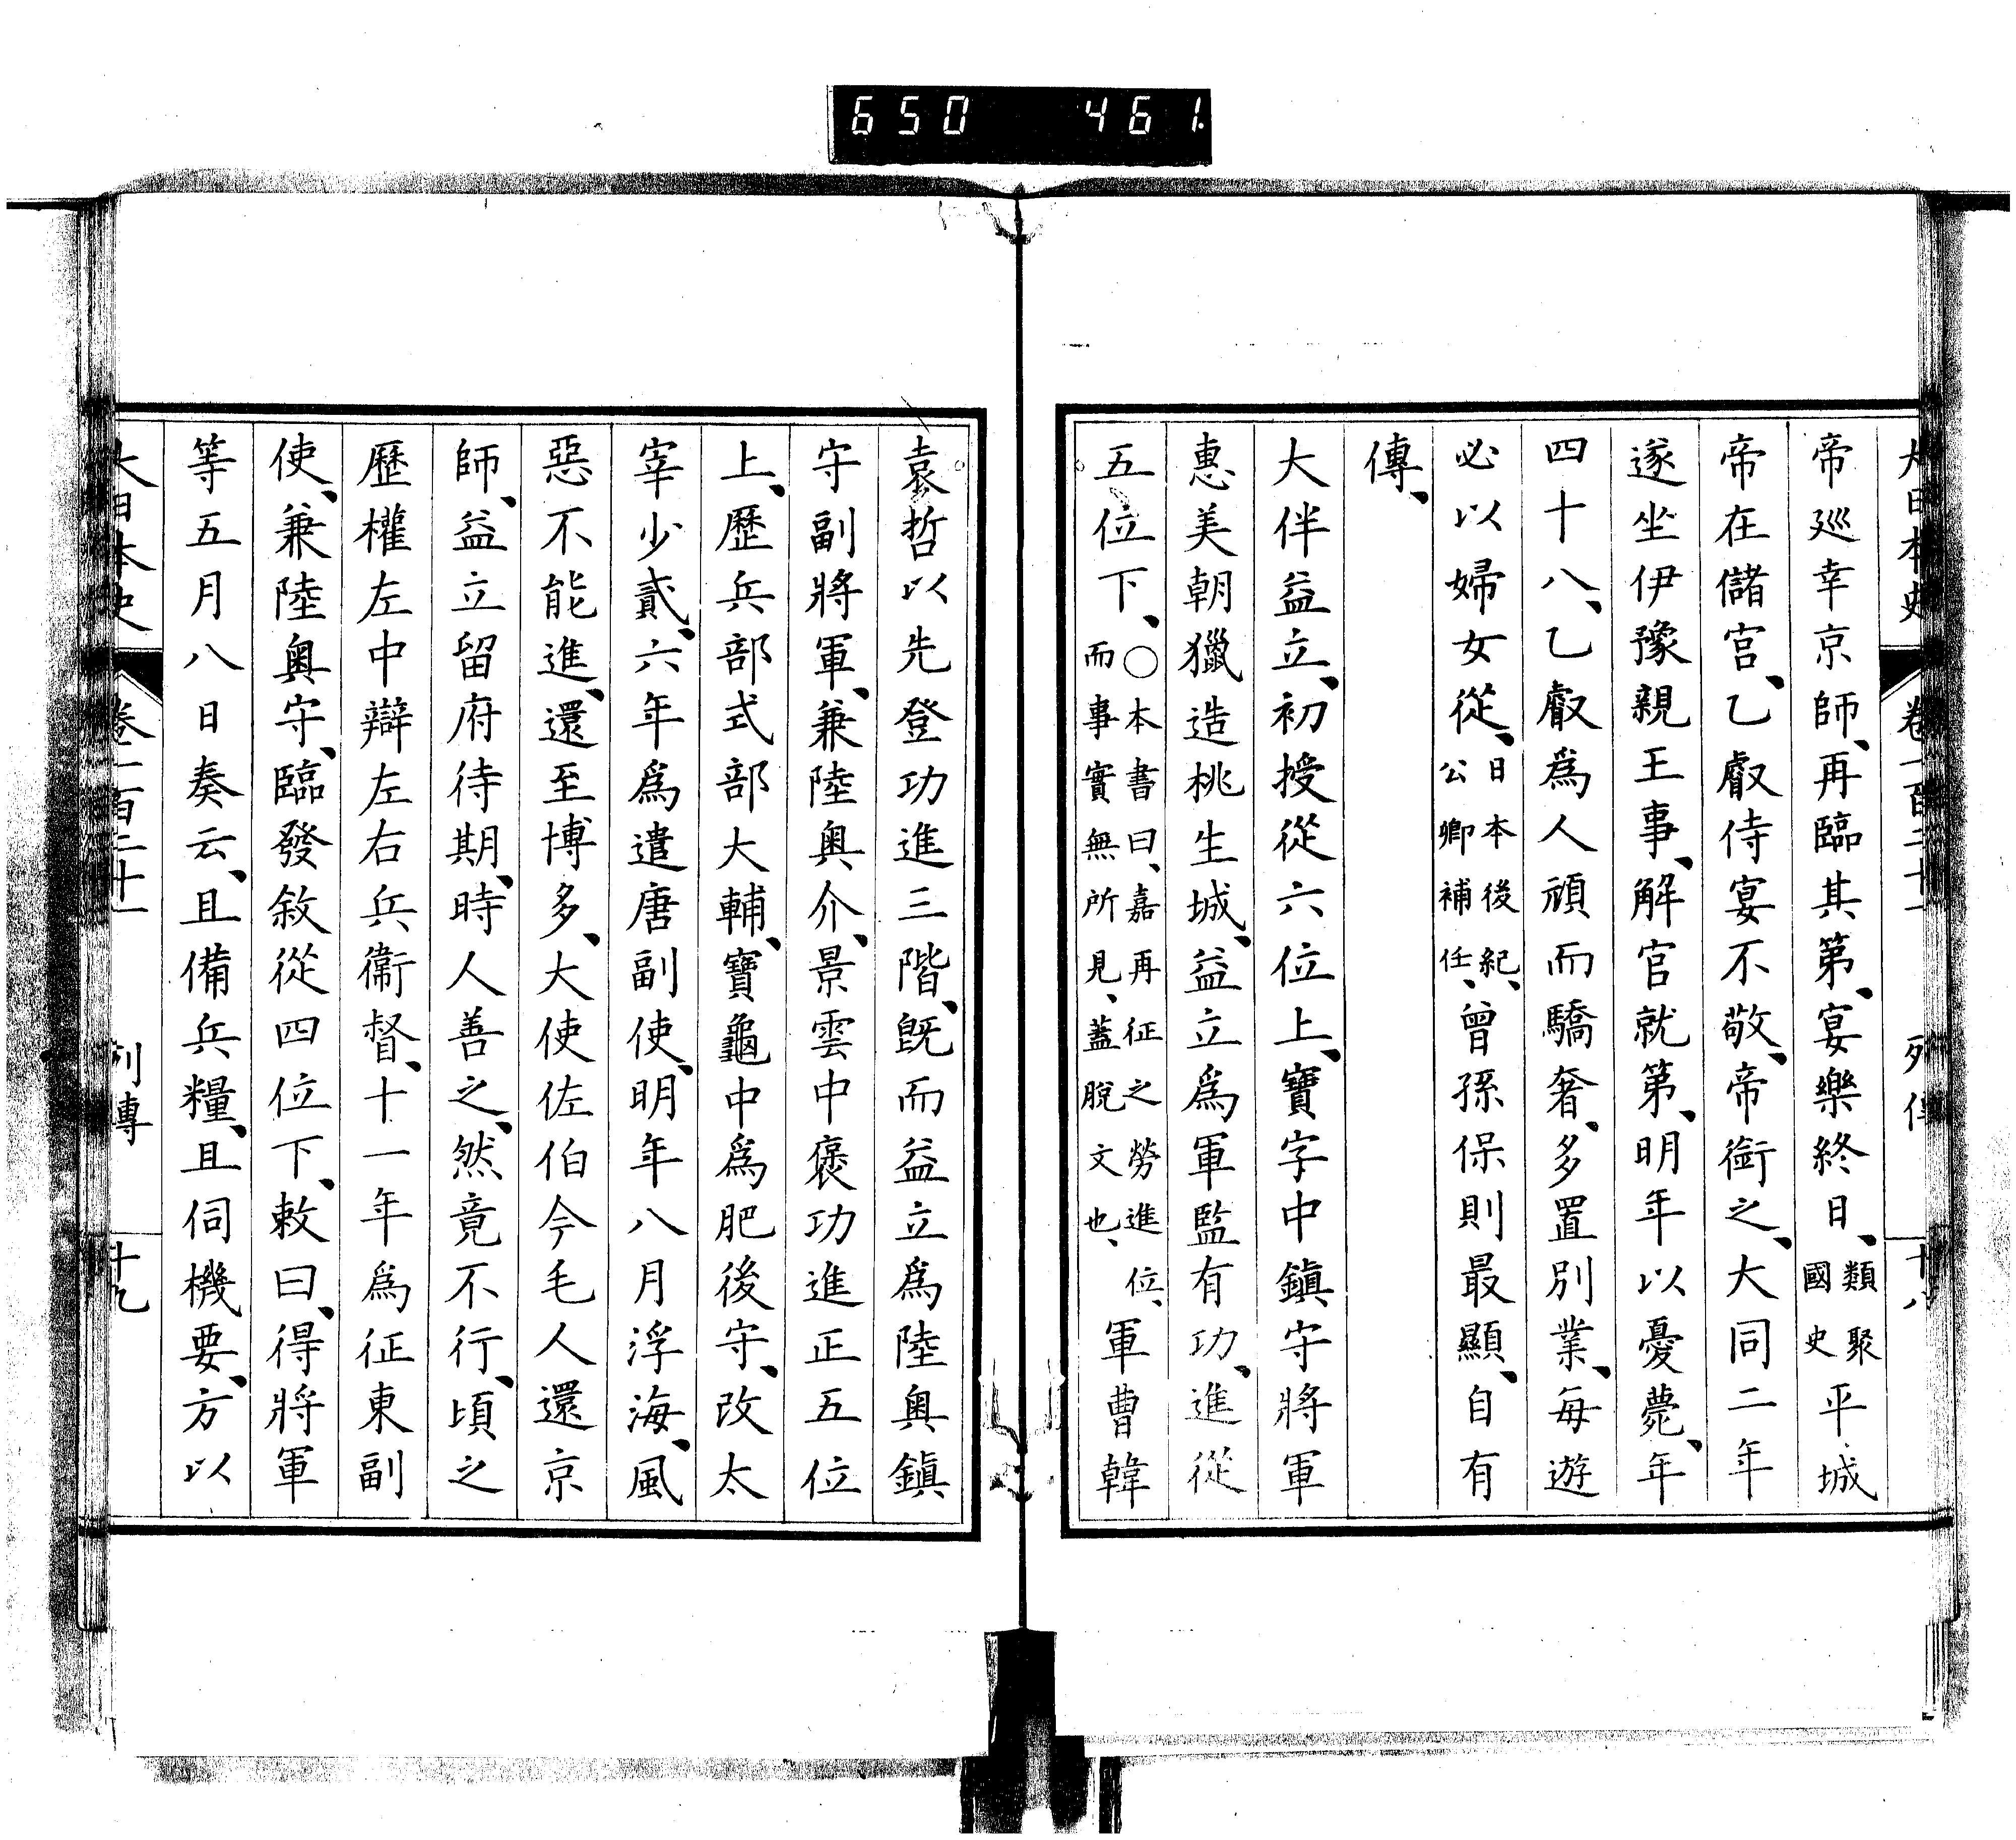 650 461
大日本史 卷一百二十一 列傳 十八
帝巡幸京師、再臨其第、宴樂終日、類聚國史平城
帝在儲宮、乙叡侍宴不敬、帝銜之、大同二年
遂坐伊豫親王事、解官就第、明年以憂薨、年
四十八、乙叡爲人頑而驕奢、多置別業、每遊
必以婦女從、日本後紀、公卿補任、曾孫保則最顯、自有
傳、
大伴益立、初授從六位上、寶字中鎭守將軍
惠美朝獵造桃生城、益立爲軍監有功、進從
五位下、○本書曰、嘉再征之勞進位、而事實無所見、蓋脫文也、軍曹韓
袁哲以先登功進三階、既而益立爲陸奧鎭
守副將軍、兼陸奧介、景雲中褒功進正五位
上、歷兵部式部大輔、寶龜中爲肥後守、改太
宰少貳、六年爲遣唐副使、明年八月浮海、風
惡不能進、還至博多、大使佐伯今毛人還京
師、益立留府待期、時人善之、然竟不行、頃之
歷權左中辯左右兵衞督、十一年爲征東副
使、兼陸奧守、臨發敘從四位下、敕曰、得將軍
等五月八日奏云、且備兵糧、且伺機要、方以
大日本史 卷一百二十一 列傳 十九